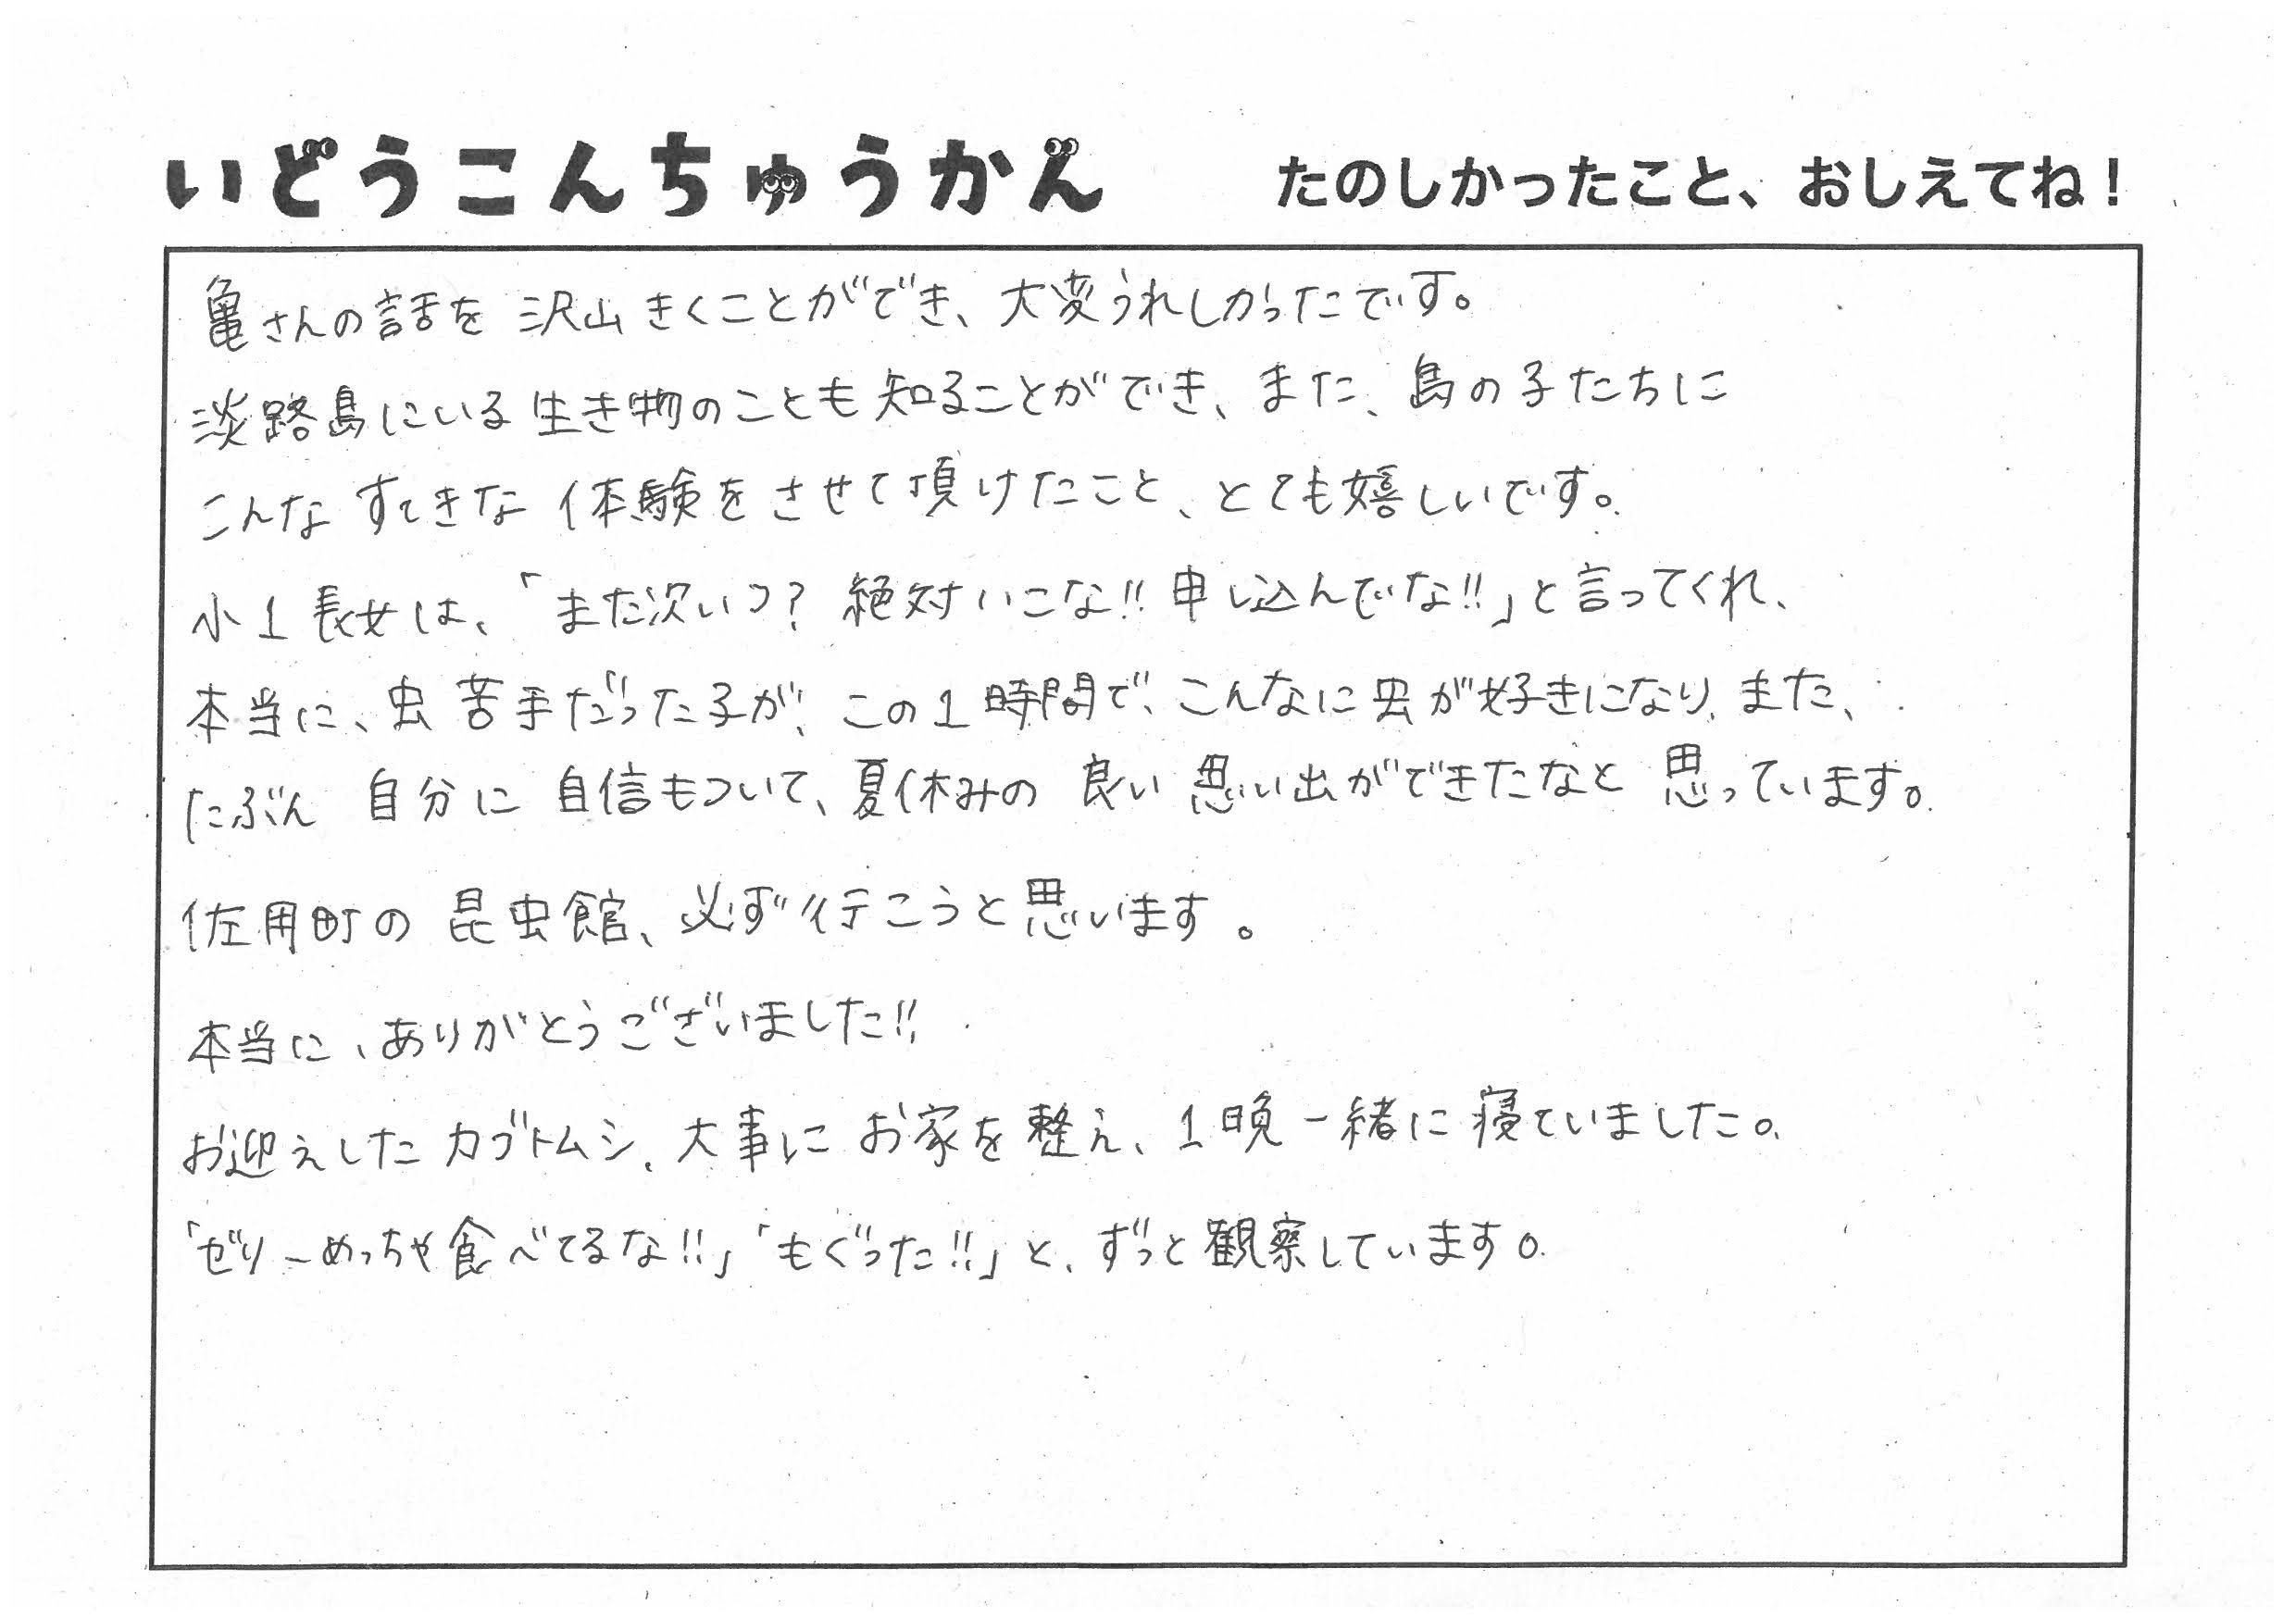 いどうこんちゅうかん たのしかったこと、おしえてね！
亀さんの話を沢山きくことができ、大変うれしかったです。
淡路島にいる生き物のことも知ることができ、また、島の子たちに
こんなすてきな体験をさせて頂けたこと、とても嬉しいです。
小1長女は、「また次いつ？絶対いこな!!申し込んでな!!」と言ってくれ、
本当に、虫苦手だった子が、この1時間で、こんなに虫が好きになり、また、
たぶん自分に自信もついて、夏休みの良い思い出ができたなと思っています。
佐用町の昆虫館、必ず行こうと思います。
本当に、ありがとうございました!!
お迎えしたカブトムシ、大事にお家を整え、1晩一緒に寝ていました。
「ゼリーめっちゃ食べてるな!!」「もぐった!!」と、ずっと観察しています。